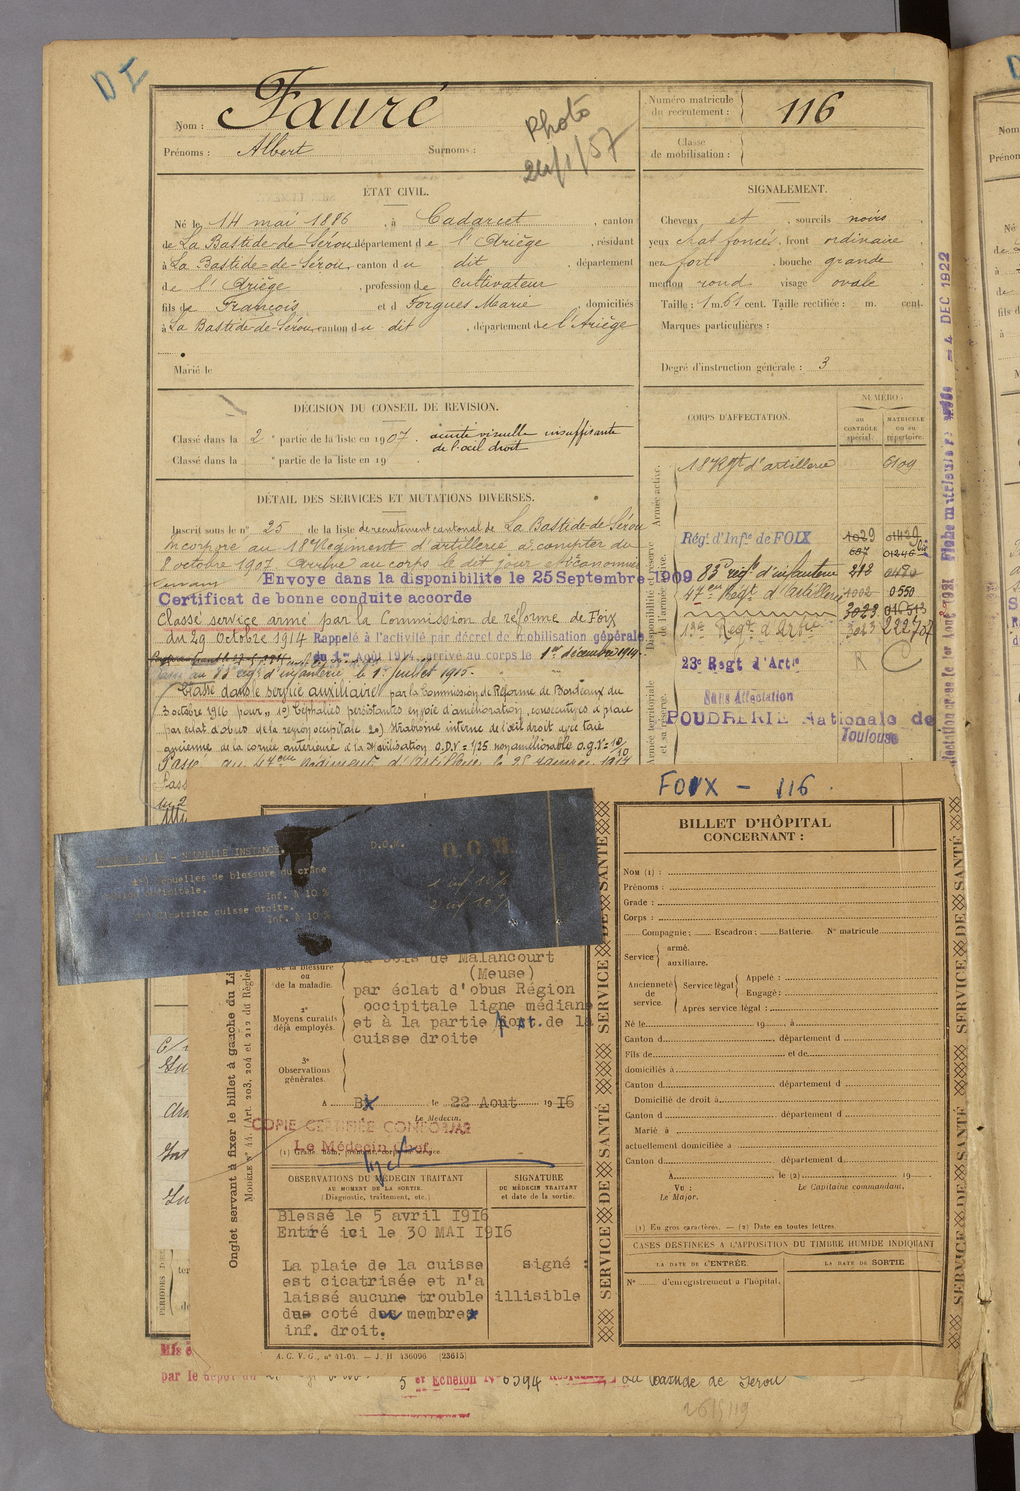 D I
Nom : Fauré
Prénoms : Albert Surnoms :
Photo
24/1/57
Numéro matricule du recrutement : 116
Classe de mobilisation :
ÉTAT CIVIL.
Né le 14 mai 1886, à Cadarcet, canton
de La Bastide-de-Sérou département de l'Ariège, résidant
à La Bastide-de-Sérou, canton du dit, département
de l'Ariège, profession de cultivateur
fils de François et d Forgues Marie, domiciliés
à La Bastide-de-Sérou, canton du dit, département de l'Ariège
Marié le
SIGNALEMENT.
Cheveux et, sourcils noirs
yeux chat foncés, front ordinaire
nez fort, bouche grande
menton rond visage ovale
Taille : 1 m. 61 cent. Taille rectifiée : m. cent.
Marques particulières :
Degré d'instruction générale : 3
DÉCISION DU CONSEIL DE REVISION.
Classé dans la 2e partie de la liste en 1907. acuité visuelle insuffisante
de l'œil droit
Classé dans la e partie de la liste en 19
CORPS D'AFFECTATION.
NUMÉRO
au CONTRÔLE spécial.
MATRICULE ou au répertoire.
Armée active.
18e Rgt d'artillerie 6109
Disponibilité et réserve de l'armée active.
Régt d'Infie de FOIX 1029
83e régt d'infanterie 212
47em Regt d'Artillerie 1002 0550
3023
13e Regt d'Artie 3023 222707
23e Regt d'Artie R C
Armée territoriale et sa réserve.
Sans Affectation
POUDRERIE Nationale de
Toulouse
4 DEC 1922
DÉTAIL DES SERVICES ET MUTATIONS DIVERSES.
Inscrit sous le n° 25 de la liste de recrutement cantonal de La Bastide-de-Sérou
Incorporé au 18e Régiment d'artillerie à compter du
8 octobre 1907. Arrivé au corps le dit jour et 2e canonnier
servant
Envoye dans la disponibilite le 25 Septembre 1909
Certificat de bonne conduite accorde
Classé service armé par la Commission de réforme de Foix
du 29 Octobre 1914 Rappelé à l'activité par décret de mobilisation générale
du 1er Août 1914, arrivé au corps le 1er décembre 1914.
Passé au 83e régt d'infanterie le 1er juillet 1915.
Classé dans le service auxiliaire par la Commission de Réforme de Bordeaux du
3 octobre 1916 pour " 1o) Céphalées persistantes en voie d'amélioration, consécutives à plaie
par éclat d'obus de la région occipitale 2o) Strabisme interne de l'œil droit avec taie
ancienne de la cornée antérieure à la mobilisation O.D.V = 1/25 non améliorable O.G.V = 10/10
Passé au 47eme Régiment d'Artillerie le 25 janvier 1917
FOIX - 116.
NOUVELLE INSTANCE.
D.O.M.
D.O.M.
de blessure du crâne
Inf. à 10 %
cicatrice cuisse droite.
Inf. à 10 %
1 inf 10%
2 inf 10%
Onglet servant à fixer le billet à gauche du Li
MODÈLE N° 44. (Art. 203, 204 et 212 du Règle
de la blessure
ou
de la maladie.
Bois de Malancourt
(Meuse)
par éclat d'obus Région
occipitale ligne médiane
et à la partie post. de la
cuisse droite
2°
Moyens curatifs
déjà employés.
3°
Observations
générales.
A Bx le 22 Aout 1916
Le Médecin,
COPIE CERTIFIÉE CONFORME
Le Médecin Chef,
OBSERVATIONS DU MÉDECIN TRAITANT
AU MOMENT DE LA SORTIE.
(Diagnostic, traitement, etc.)
SIGNATURE
DU MÉDECIN TRAITANT
et date de la sortie.
Blessé le 5 avril 1916
Entré ici le 30 MAI 1916
La plaie de la cuisse
est cicatrisée et n'a
laissé aucune trouble
du coté des membre
inf. droit.
signé :
illisible
A. C. V. G., n° 41-04. — J. H. 436096 (23615)
SERVICE DE SANTÉ SERVICE DE SANTÉ
BILLET D'HÔPITAL
CONCERNANT :
NOM (1) :
Prénoms :
Grade :
Corps :
Compagnie; Escadron; Batterie. N° matricule
Service armé. auxiliaire.
Ancienneté de service. Service légal Appelé :
Engagé :
Après service légal :
Né le 19 , à
Canton d , département d
Fils de et de
domiciliés à
Canton d , département d
Domicilié de droit à
Canton d , département d
Marié à
actuellement domiciliée à
Canton d , département d
A , le (2) 19
VU :
Le Major.
Le Capitaine commandant,
(1) En gros caractères. — (2) Date en toutes lettres.
CASES DESTINÉES A L'APPOSITION DU TIMBRE HUMIDE INDIQUANT
LA DATE DE L'ENTRÉE. LA DATE DE SORTIE.
N° d'enregistrement à l'hôpital.
SERVICE DE SANTÉ SERVICE DE SANTÉ
par le dépôt du
5 er Echelon N° 6394 La Bastide de Sérou
26/5/19